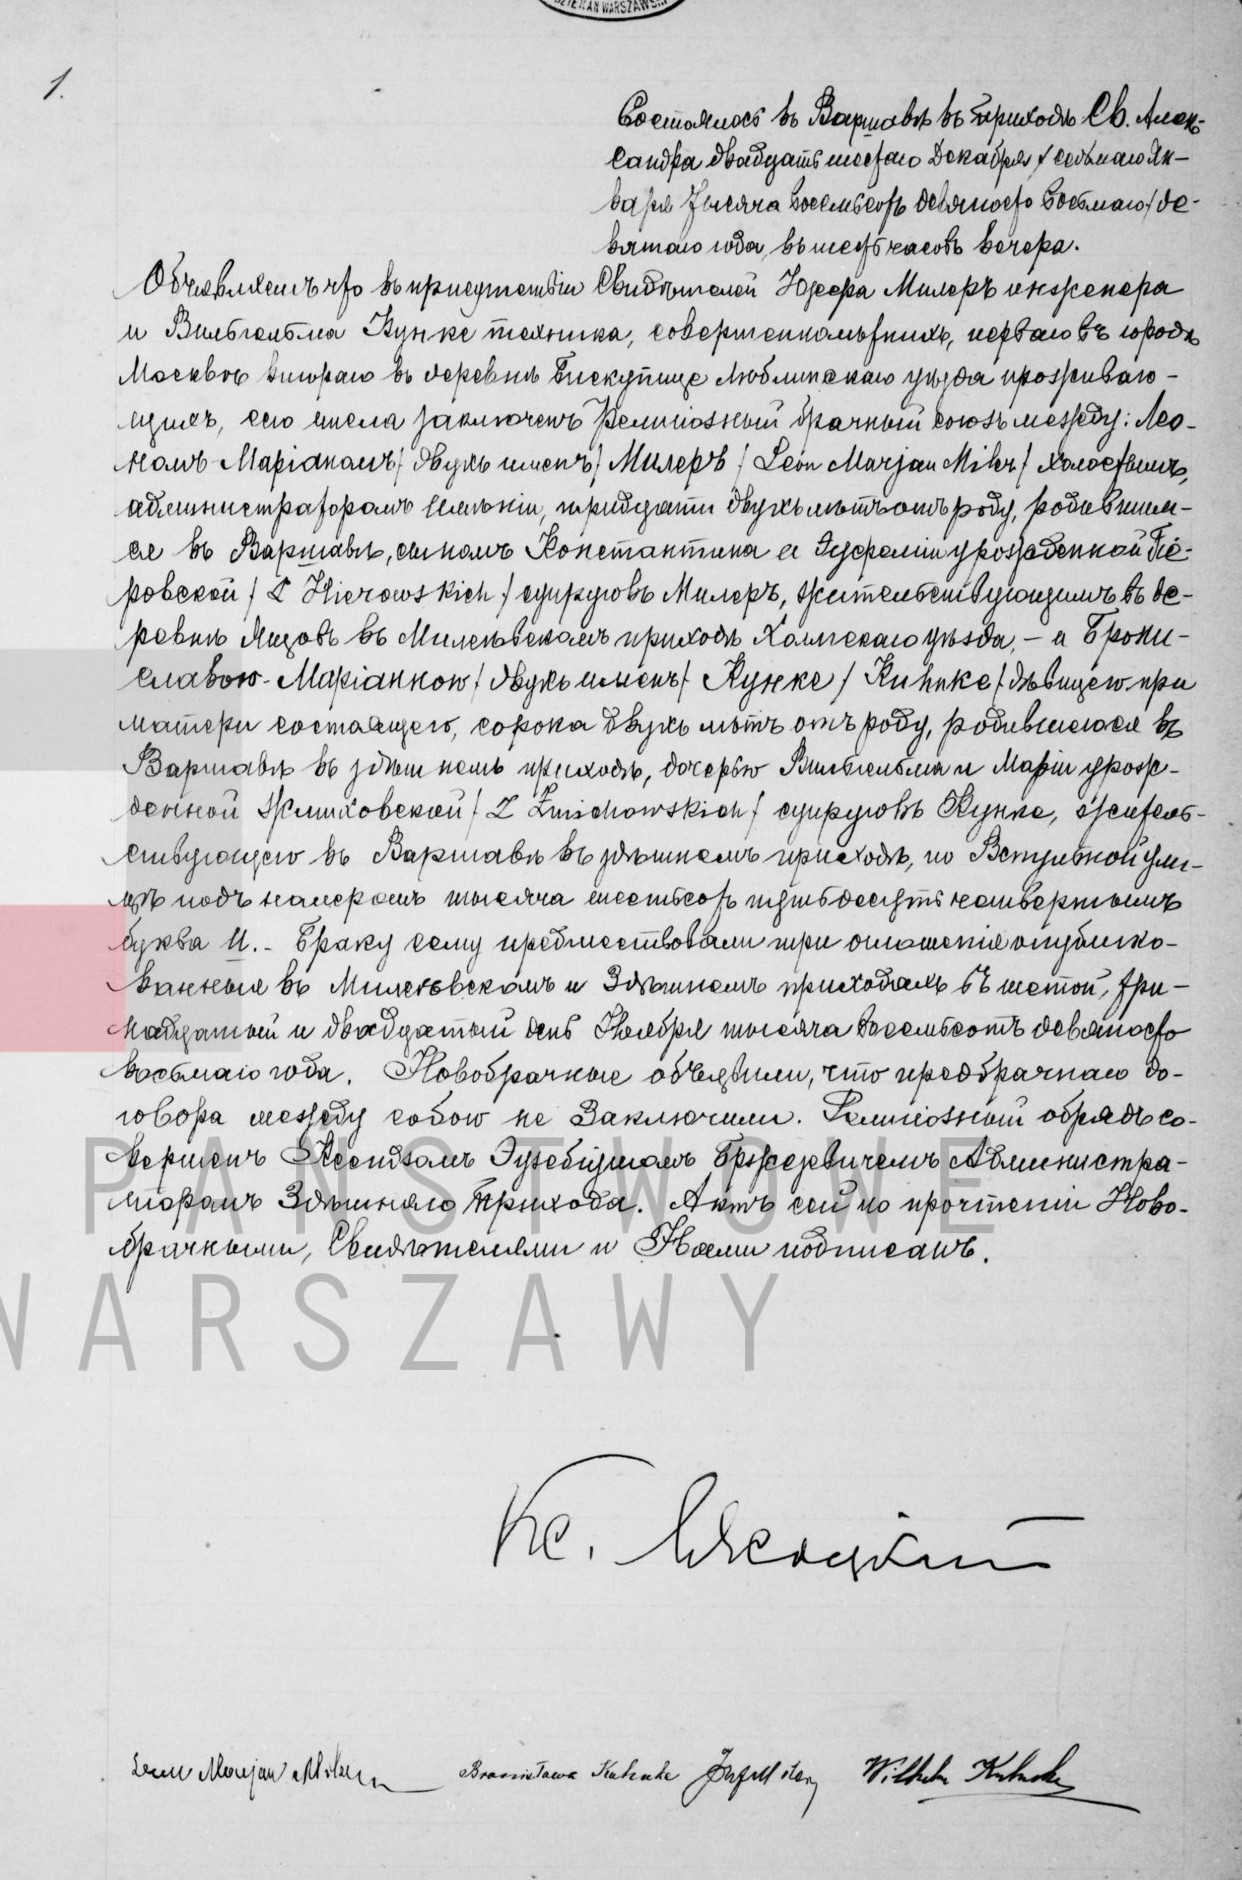 DZIEKAN WARSZAWSKI
1.
Состоялось въ Варшавѣ въ приходѣ Св. Алек-
сандра двадцать шестаго Декабря / седьмаго Ян-
варя тысяча восемьсотъ девяносто восьмаго / де-
вятаго года, въ шесть часовъ вечера.
Объявляемъ что въ присутствіи Свидѣтелей Юзефа Милеръ инженера
и Вильгельма Кунке техника, совершеннолѣтнихъ, перваго въ городѣ
Москвѣ втораго въ деревнѣ Бискупице Люблинскаго уѣзда прожива-
ющихъ, сего числа заключенъ религіозный брачный союзъ между: Лео-
номъ-Маріаномъ / двухъ именъ / Милеръ / Leon Marjan Miler / холостымъ,
администраторомъ имѣнія, тридцати двухъ лѣтъ отъ роду, родившим-
ся въ Варшавѣ, сыномъ Константина и Эуфеміи урожденной Гіе-
ровской / z Hierowskich / супруговъ Милеръ, жительствующимъ въ де-
ревнѣ въ приходѣ Холмскаго уѣзда, – и Брони-
славою-Маріанною / двухъ именъ / Кунке / Kuhnke / дѣвицею при
матери состоящею, сорока двухъ лѣтъ отъ роду, родившеюся въ
Варшавѣ въ здѣшнемъ приходѣ, дочерью Вильгельма и Маріи урож-
денной Жмиховской / z Żmichowskich / супруговъ Кунке, житель-
ствующею въ Варшавѣ въ здѣшнемъ приходѣ, по улицѣ подъ номеромъ тысяча шестьсотъ четвертымъ
буква И. – Браку сему предшествовали три оглашенія опублико-
ванныя въ и Здѣшнемъ приходахъ въ шестой, три-
надцатый и двадцатый день Ноября тысяча восемьсотъ девяносто
восьмаго года. Новобрачные объявили, что предбрачнаго до-
говора между собою не заключили. Религіозный обрядъ со-
вершенъ Ксендзомъ Администра-
торомъ Здѣшняго Прихода. Актъ сей по прочтеніи Ново-
брачными, Свидѣтелями и Нами подписанъ.
PAŃSTWOWE
WARSZAWY
Кс.
Leon Marjan Miler Bronisława Kuhnke Józef Miler Wilhelm Kuhnke